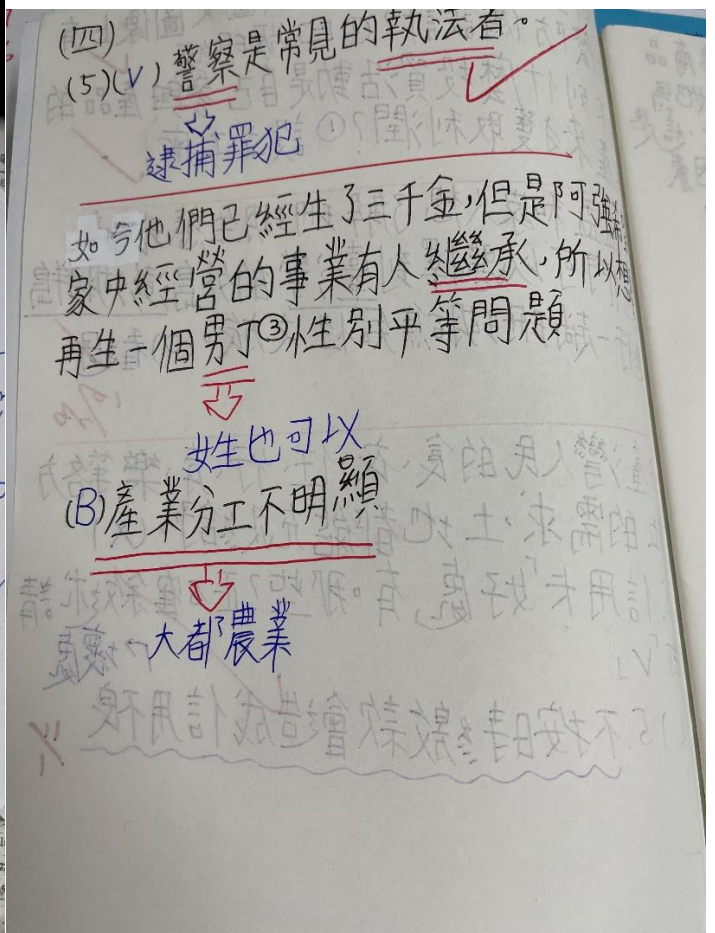 (四)
(5)(V)警察是常見的執法者。
逮捕罪犯
如今他們已經生了三千金,但是阿強希
家中經營的事業有人繼承,所以想
再生一個男丁③性別平等問題
女生也可以
(B)產業分工不明顯
大都農業